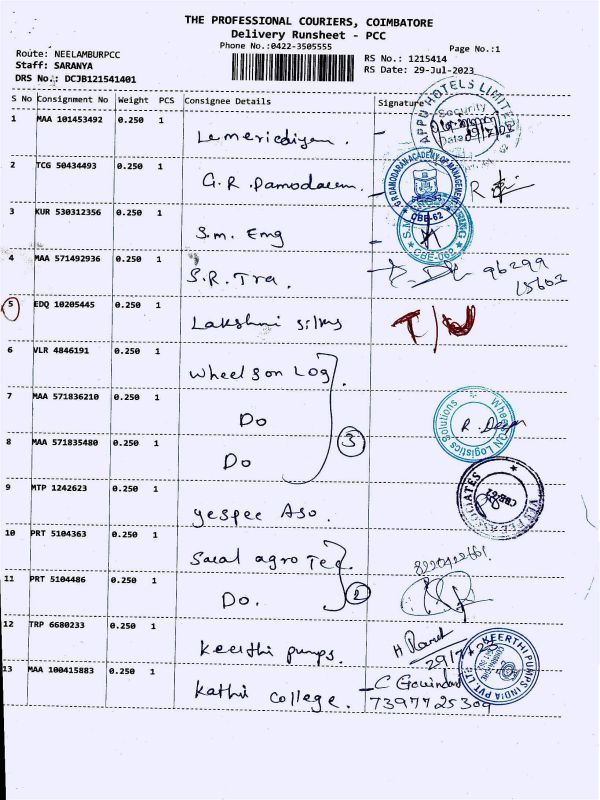 THE PROFESSIONAL COURIERS, COIMBATORE
Delivery Runsheet - PCC
Phone No.:0422-3505555
Page No.:1
Route: NEELAMBURPCC
Staff: SARANYA
DRS No.: DCJB121541401
RS No.: 1215414
RS Date: 29-Jul-2023
S No Consignment No Weight PCS Consignee Details Signature
1 MAA 101453492 0.250 1 Lemericdiyan.
APPU HOTELS LIMITED
Security
2 TCG 50434493 0.250 1 G.R. Damodaram.
G.R. DAMODARAN ACADEMY OF MANAGEMENT
CBE-62
3 KUR 530312356 0.250 1 S.m. Emg
CBE-062
4 MAA 571492936 0.250 1 S.R. Tra. 96299
15603
5 EDQ 10205445 0.250 1 Lakshmi silks
6 VLR 4846191 0.250 1 Wheelson Log.
7 MAA 571836210 0.250 1 Do
WheelsON Logistics Solutions
8 MAA 571835480 0.250 1 Do
3
9 MTP 1242623 0.250 1 yespee Aso.
YES PEE ASSOCIATES
CBE-62
10 PRT 5104363 0.250 1 Saral agro Tec.
11 PRT 5104486 0.250 1 Do.
2
12 TRP 6680233 0.250 1 Keerthi pumps.
29/7/23
KEERTHI PUMPS INDIA PVT. LTD
13 MAA 100415883 0.250 1 Kathir college.
C Govindan
7397725309